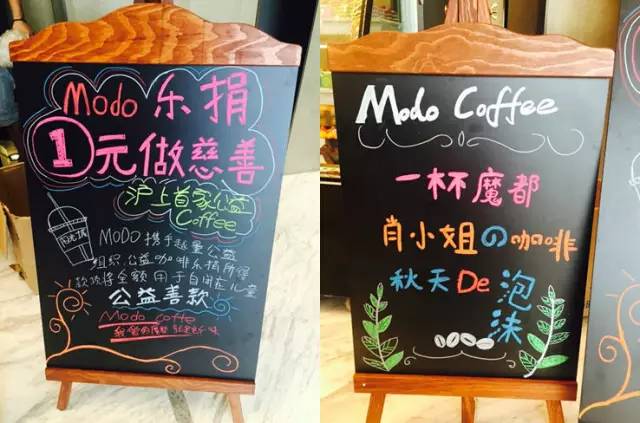 Modo 乐捐
1元做慈善
沪上首家公益
Coffee
MODO携手越童公益
组织,公益咖啡乐捐所得
款项将全额用于自闭症儿童
公益善款
Modo coffe
Modo Coffee
一杯魔都
肖小姐の咖啡
秋天De泡沫